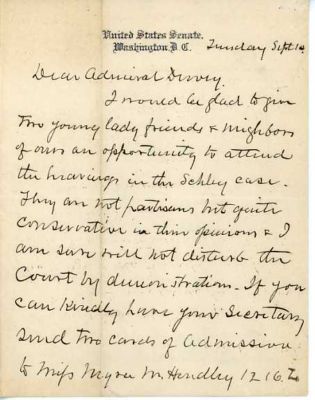 United States Senate,
Washington, D.C. Tuesday Sept 10
Dear Admiral Dewey
I would be glad to give
two young lady friends & neighbors
of ours an opportunity to attend
the hearings in the Schley case.
They are not partisans but quite
conservative in their opinions & I
am sure will not disturb the
Court by demonstrations. If you
can kindly have your Secretary
send two cards of admission
to Miss Myra M. Hendley 1216.